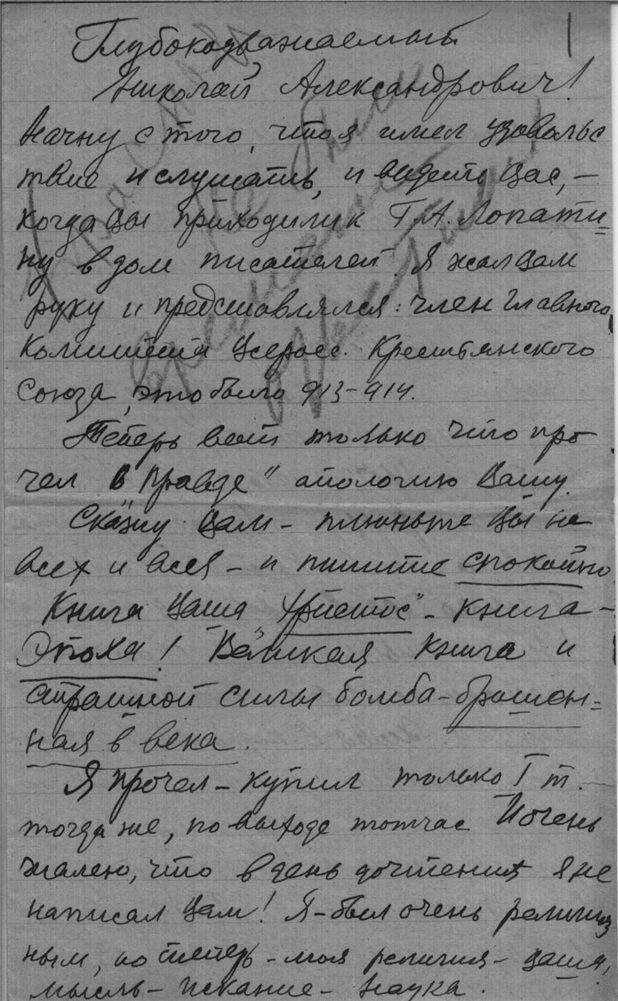 Глубокоуважаемый
Николай Александрович!
Начну с того, что я имел удовольс
твие и слушать, и видеть Вас, –
когда Вы приходили к Г. А. Лопати=
ну в дом писателей. Я жал Вам
руку и представлялся: член Главного
Комитета Всеросс. Крестьянского
Союза, это было 913–914.
Теперь вот только что про
чел в „Правде" апологию Вашу.
Скажу Вам – плюньте Вы на
всех и вся – и пишите спокойно
Книга Ваша „Христос" – книга –
Эпоха! Великая Книга и
страшной силы бомба – брошен=
ная в века.
Я прочел – купил только I т.
тогда же, по выходе тотчас И очень
жалею, что в день дочтения я не
написал Вам! Я – был очень религиоз
ным, но теперь – моя религия – Ваша,
мысль – искание – наука.